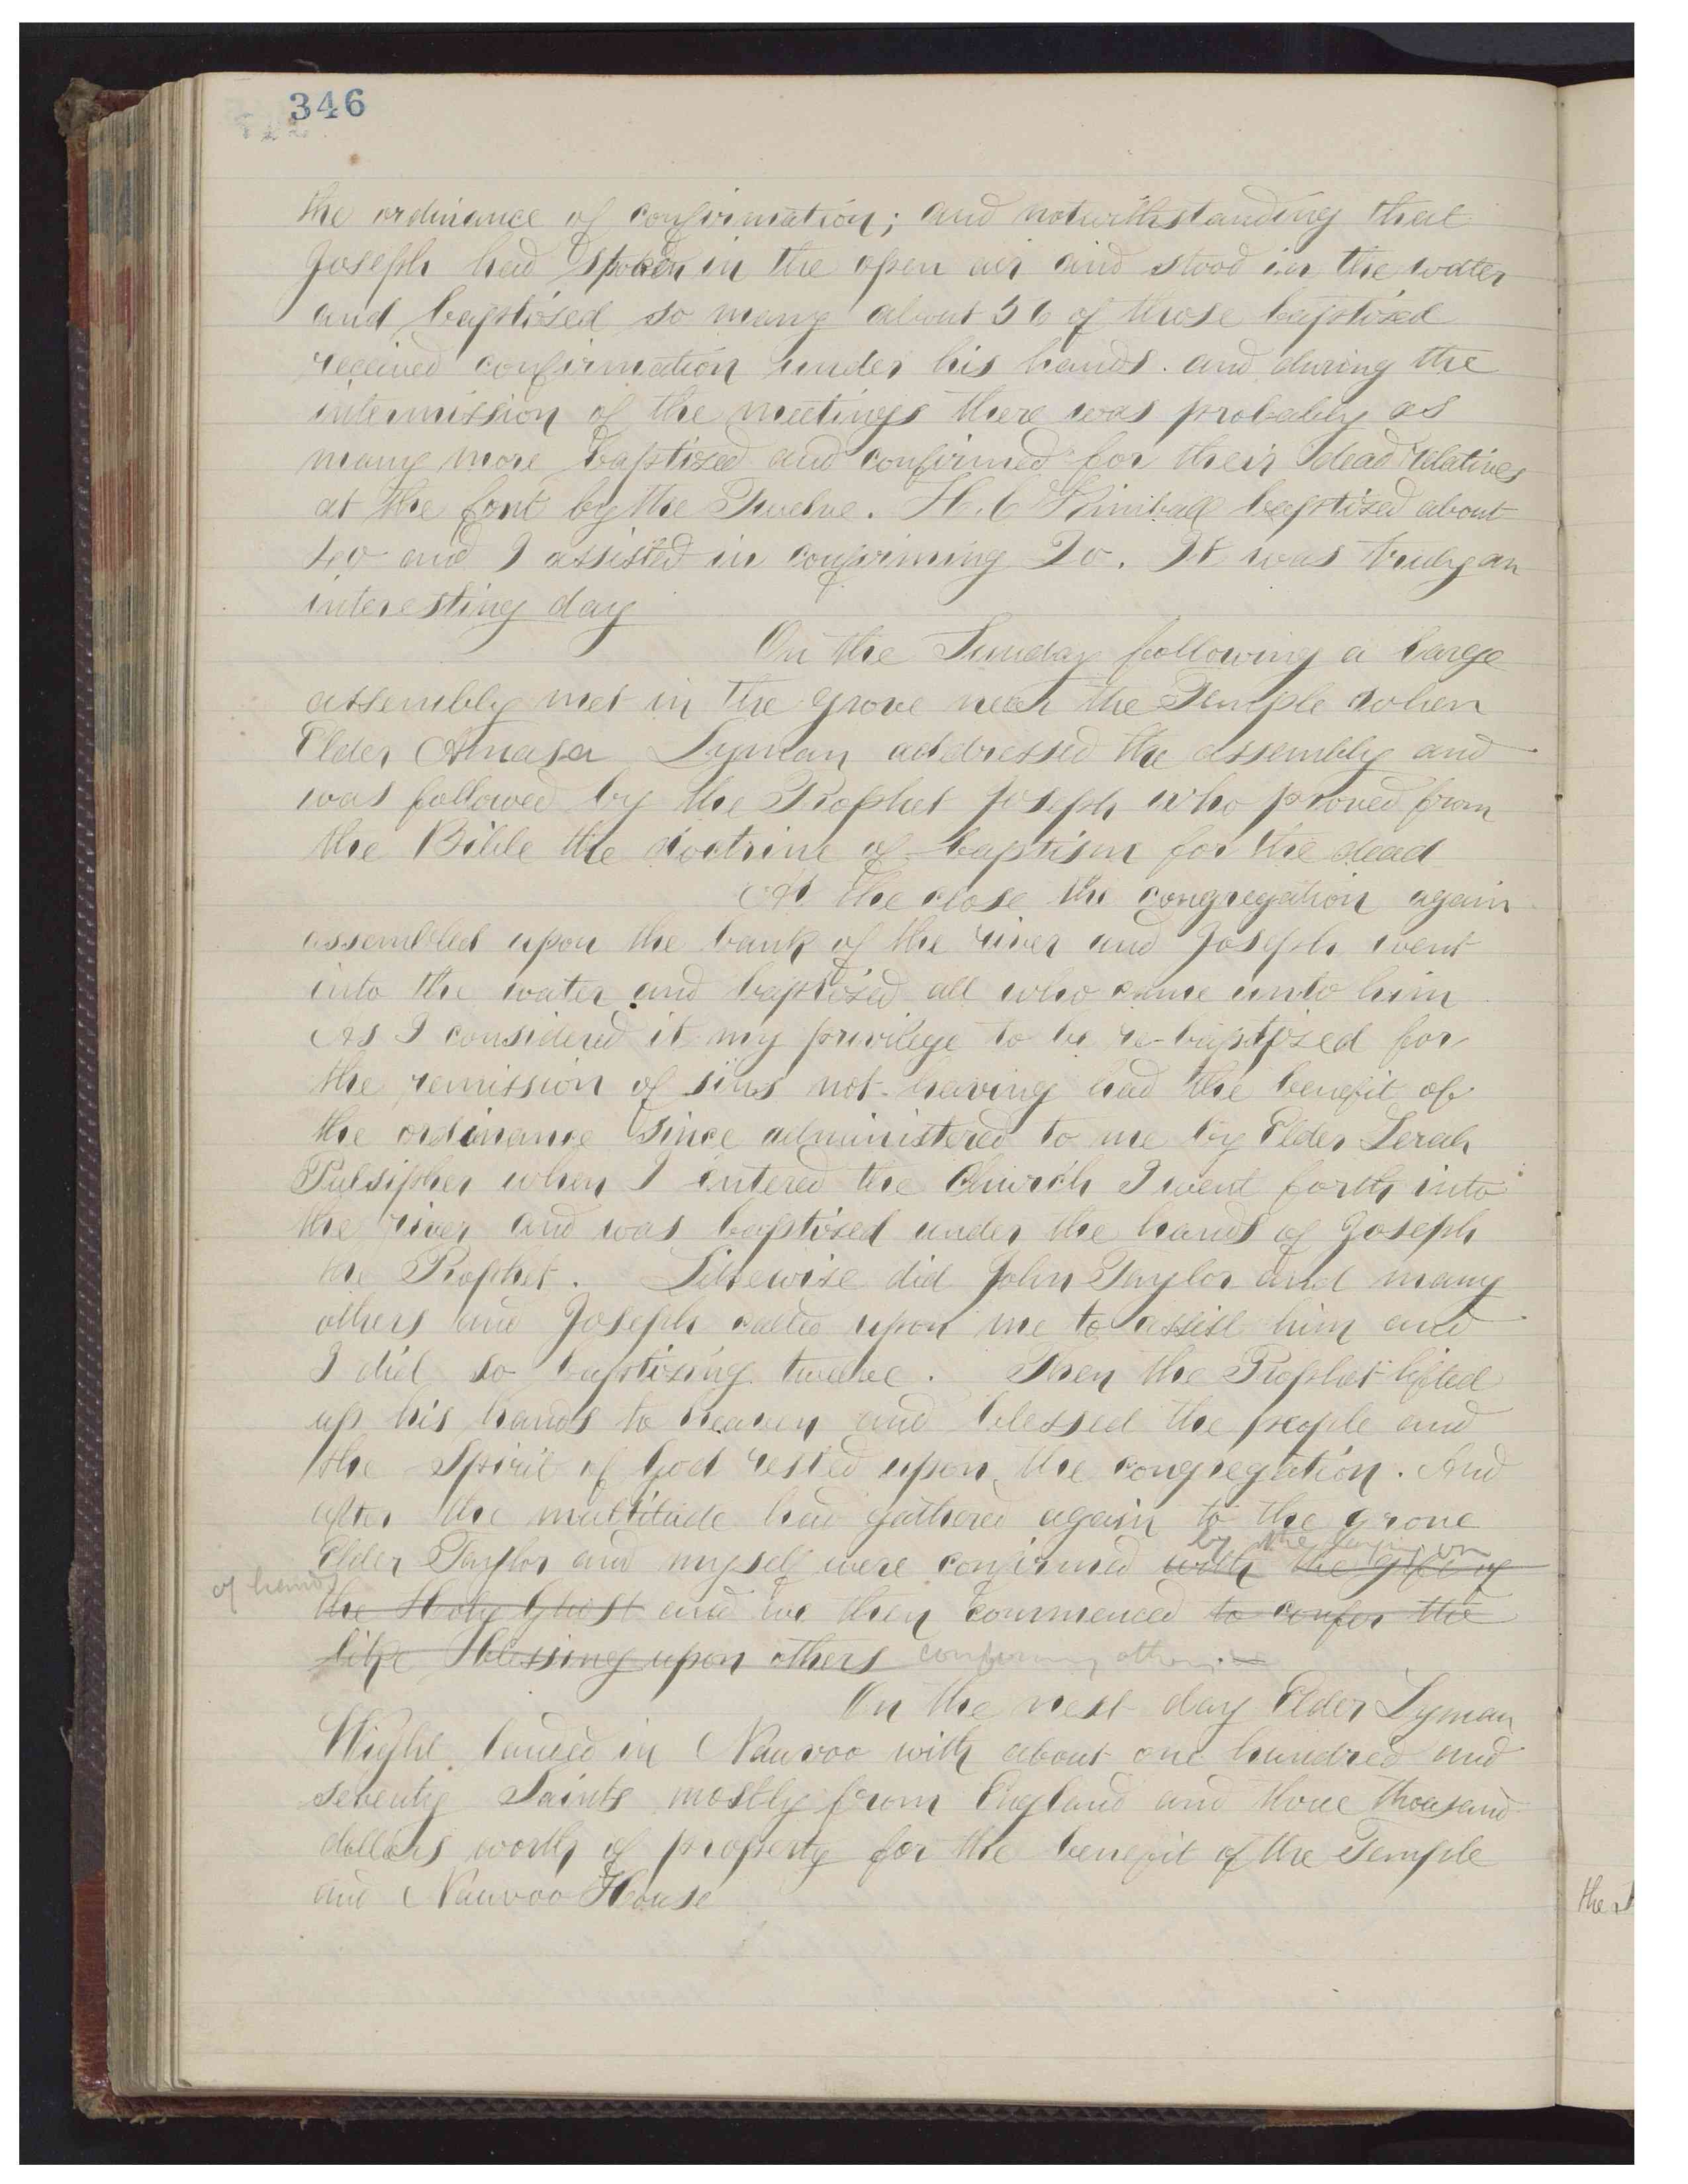 346
the ordinance of confirmation; and notwithstanding that
Joseph had spoken in the open air and stood in the water
and baptised so many about 50 of those baptised
received confirmation under his hands. and during the
intermission of the meetings there was probably as
many more baptized and confirmed for their dead relatives
at the font by the Twelve. H. C Kimball baptized about
40 and I assisted in confirming 20. It was truly an
interesting day
On the Sunday following a large
assembly met in the grove near the Temple when
Elder Amasa Lyman addressed the assembly and
was followed by the Prophet Joseph who proved from
the Bible the doctrine of baptism for the dead
At the close the congregation again
assembled upon the bank of the river and Joseph went
into the water and baptized all who came unto him
As I considered it my privilege to be re-baptized for
the remission of sins not having had the benefit of
the ordinance since administered to me by Elder Zerah
Pulsipher when I entered the Church I went forth into
the river and was baptised under the hands of Joseph
the Prophet. Likewise did John Taylor and many
others and Joseph called upon me to assist him and
I did so baptizing twelve. Then the Prophet lifted
up his hands to heaven and blessed the people and
the Spirit of God rested upon the congregation. And
after the multitude had gathered again to the grove
by the laying on
Elder Taylor and myself were confirmed with the gift of
of hands
the Holy Ghost and we then commenced to confer the
like blessing upon others confirming others.
On the next day Elder Lyman
Wight landed in Nauvoo with about one hundred and
seventy Saints mostly from England and three thousand
dollars worth of property for the benefit of the Temple
and Nauvoo House
the